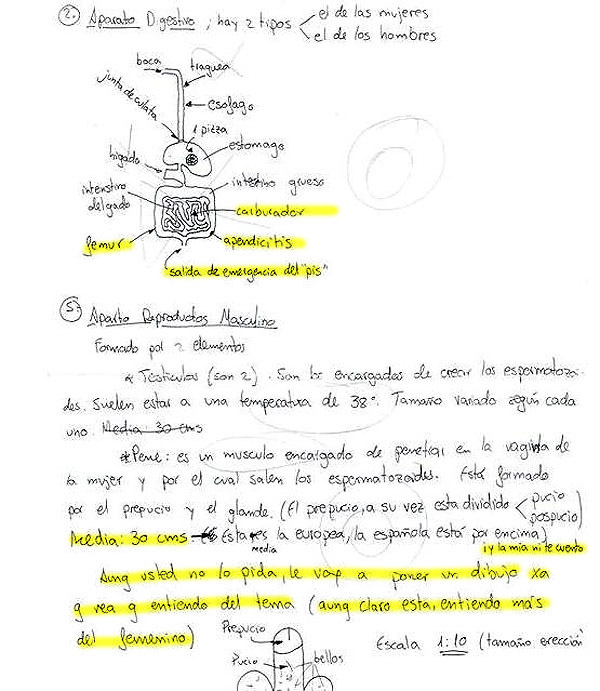 2. Aparato Digestivo, hay 2 tipos
el de las mujeres
el de los hombres
boca
traquea
junta de culata
esofago
1 pizza
estomago
higado
intenstiro delgado
intestino grueso
carburador
femur
apendicitis
salida de emergencia del "pis"
5. Aparto Reproductos Masculino
Formado por 2 elementos
* Testiculos (son 2). Son los encargados de crear los espermatozoi-
des. Suelen estar a una temperatura de 38°. Tamaño variado según cada
uno. Media: 30 cms
* Pene: es un musculo encargado de penetrar en la vagina de
la mujer y por el cual salen los espermatozoides. Está formado
por el prepucio y el glande. (El prepucio, a su vez esta dividido
pucio
pospucio)
Media: 30 cms Esta es la europea, la española está por encima)
media
¡y la mia ni te cuento
Aunq usted no lo pida, le voy a poner un dibujo xa
q vea q entiendo del tema (aunq claro esta, entiendo más
del femenino)
Prepucio
Pucio
bellos
Escala 1:10 (tamaño erección